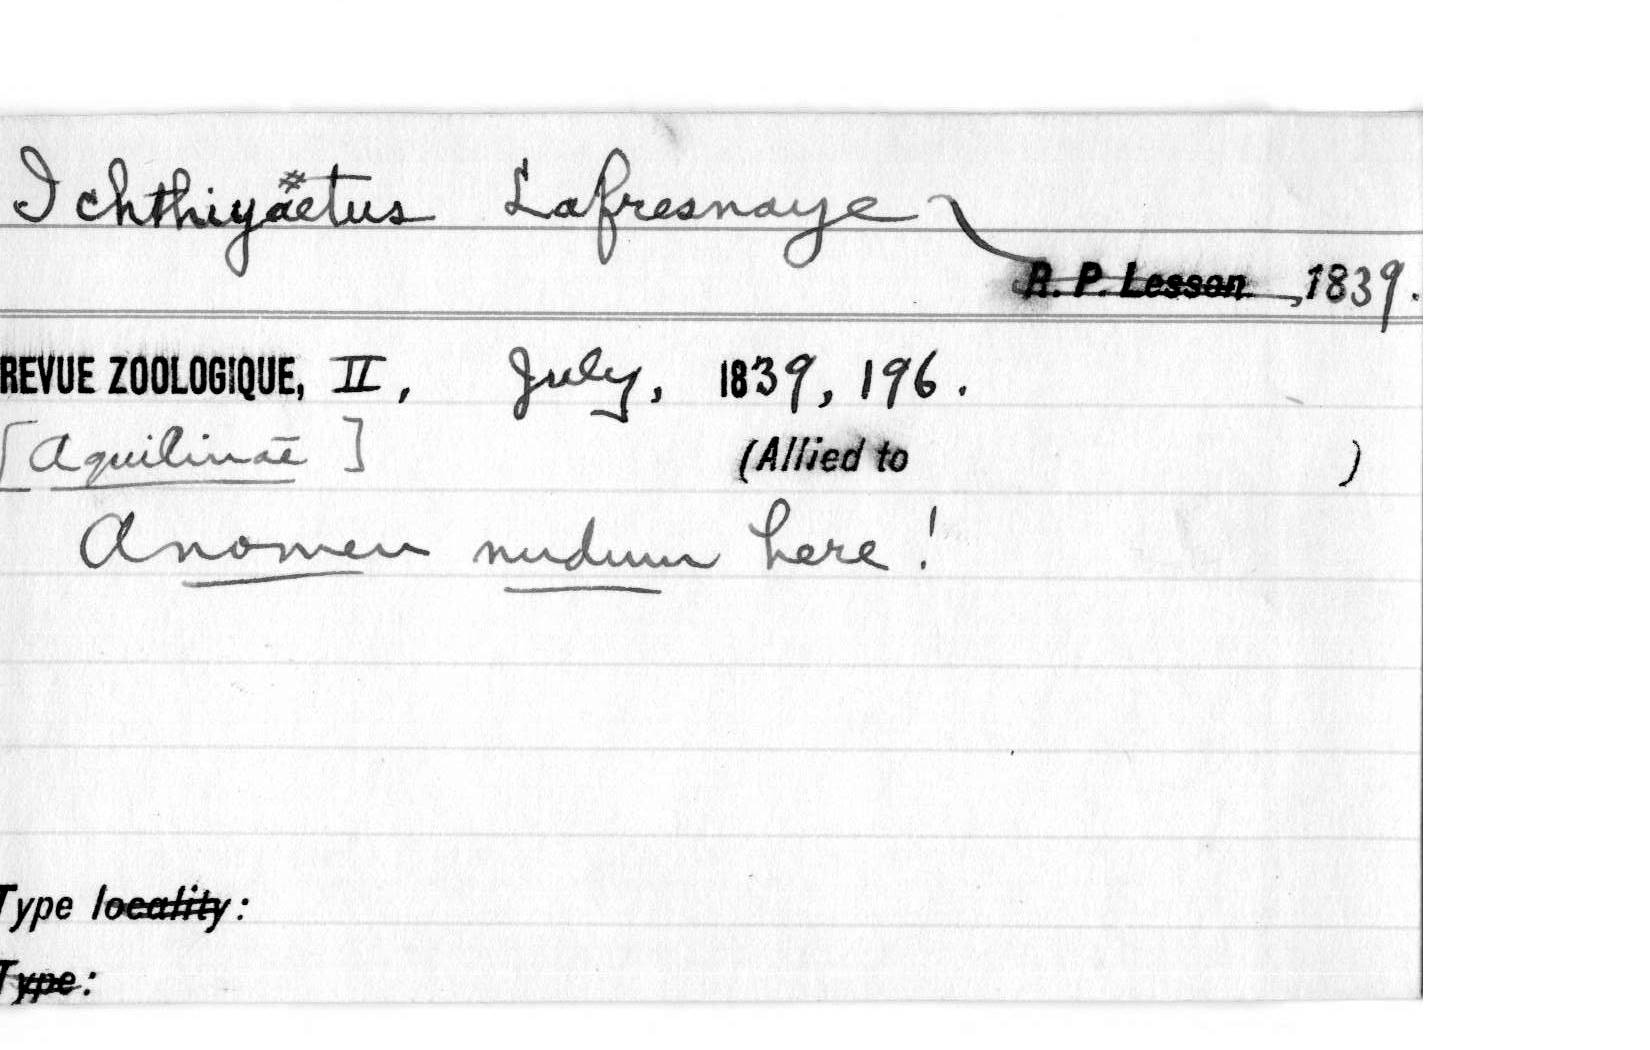 Ichthiyäetus Lafresnaye
R. P. Lesson, 1839.
REVUE ZOOLOGIQUE, II, July, 1839, 196.
[Aquilinae] (Allied to )
A nomen nudum here!
Type locality:
Type: